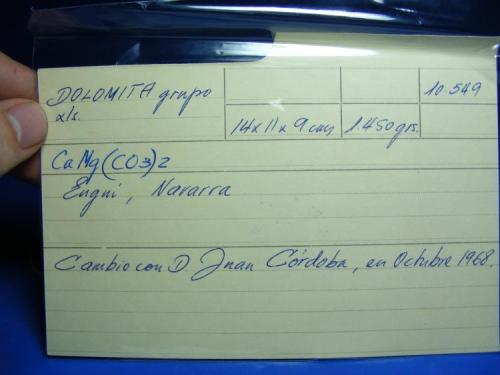 DOLOMITA grupo
xls.
14x11x9 cms
1.450 grs.
10.549
CaMg(CO3)2
Eugui, Navarra
Cambio con D. Juan Córdoba, en Octubre 1968.